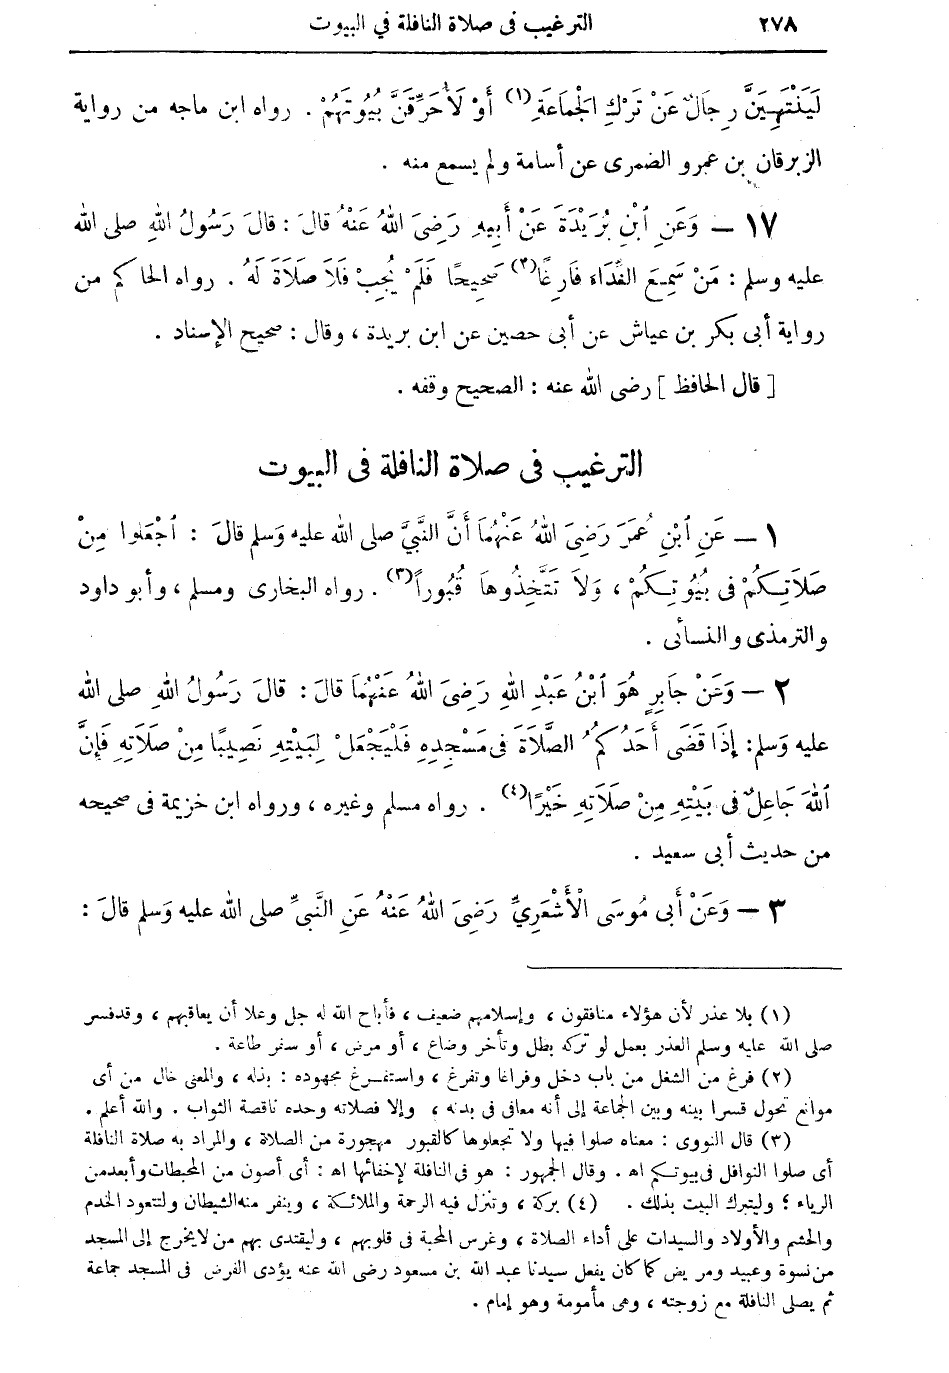 ٢٧٨ الترغيب فى صلاة النافلة في البيوت
لَيَنْتَهِيَنَّ رِجَالٌ عَنْ تَرْكِ الْجَمَاعَةِ (١) أَوْ لَأُحَرِّقَنَّ بُيُوتَهُمْ . رواه ابن ماجه من رواية
الزبرقان بن عمرو الضمرى عن أسامة ولم يسمع منه .
١٧ — وَعَنِ ٱبْنِ بُرَيْدَةَ عَنْ أَبِيهِ رَضِيَ اللهُ عَنْهُ قالَ : قالَ رَسُولُ اللهِ صلى الله
عليه وسلم : مَنْ سَمِعَ النِّدَاءَ فَارِغًا (٢) صَحِيحًا فَلَمْ يُجِبْ فَلاَ صَلَاَةَ لَهُ . رواه الحاكم من
رواية أبى بكر بن عياش عن أبى حصين عن ابن بريدة ، وقال : صحيح الإسناد .
[ قال الحافظ ] رضى الله عنه : الصحيح وقفه .
الترغيب فى صلاة النافلة فى البيوت
١ — عَنِ ٱبْنِ عُمَرَ رَضِيَ اللهُ عَنْهُمَا أَنَّ النَّبِيَّ صلى الله عليه وَسلم قالَ : ٱجْعَلُوا مِنْ
صَلَاتِكُمْ فى بُيُوتِكُمْ ، وَلاَ تَتَّخِذُوهَا قُبُوراً (٣) . رواه البخارى ومسلم ، وأبو داود
والترمذى والنسائى .
٢ — وَعَنْ جَابِرٍ هُوَ ٱبْنُ عَبْدِ اللهِ رَضِيَ اللهُ عَنْهُمَا قالَ : قالَ رَسُولُ اللهِ صلى الله
عليه وَسلم: إِذَا قَضَى أَحَدُكُمُ الصَّلَاَةَ فى مَسْجِدِهِ فَلْيَجْعَلْ لِبَيْتِهِ نَصِيبًا مِنْ صَلَاَتِهِ فَإِنَّ
ٱللهَ جَاعِلٌ فى بَيْتِهِ مِنْ صَلَاَتِهِ خَيْرًا (٤) . رواه مسلم وغيره ، ورواه ابن خزيمة فى صحيحه
من حديث أبى سعيد .
٣ — وَعَنْ أَبى مُوسَى الْأَشْعَرِيِّ رَضِيَ اللهُ عَنْهُ عَنِ النَّبِيِّ صلى الله عليه وَسلم قالَ :
(١) بلا عذر لأن هؤلاء منافقون ، وإسلامهم ضعيف ، فأباح الله له جل وعلا أن يعاقبهم ، وقد فسر
صلى الله عليه وسلم العذر بعمل لو تركه بطل وتأخر وضاع ، أو مرض ، أو سفر طاعة .
(٢) فرغ من الشغل من باب دخل وفراغا وتفرغ ، واستفرغ مجهوده : بذله ، والمعنى خال من أى
موانع تحول قسرا بينه وبين الجماعة إلى أنه معافى فى بدنه ، وإلا فصلاته وحده ناقصة الثواب . والله أعلم .
(٣) قال النووى : معناه صلوا فيها ولا تجعلوها كالقبور مهجورة من الصلاة ، والمراد به صلاة النافلة
أى صلوا النوافل فى بيوتكم اه . وقال الجمهور : هو فى النافلة لإخفائها اه : أى أصون من المحبطات وأبعد من
الرياء ؛ وليتبرك البيت بذلك . (٤) بركة ، وتتنزل فيه الرحمة والملائكة ، وينفر منه الشيطان ولتتعود الخدم
والحشم والأولاد والسيدات على أداء الصلاة ، وغرس المحبة فى قلوبهم ، وليقتدى بهم من لا يخرج إلى المسجد
من نسوة وعبيد ومريض كما كان يفعل سيدنا عبد الله بن مسعود رضى الله عنه يؤدى الفرض فى المسجد جماعة
ثم يصلى النافلة مع زوجته ، وهى مأمومة وهو إمام .